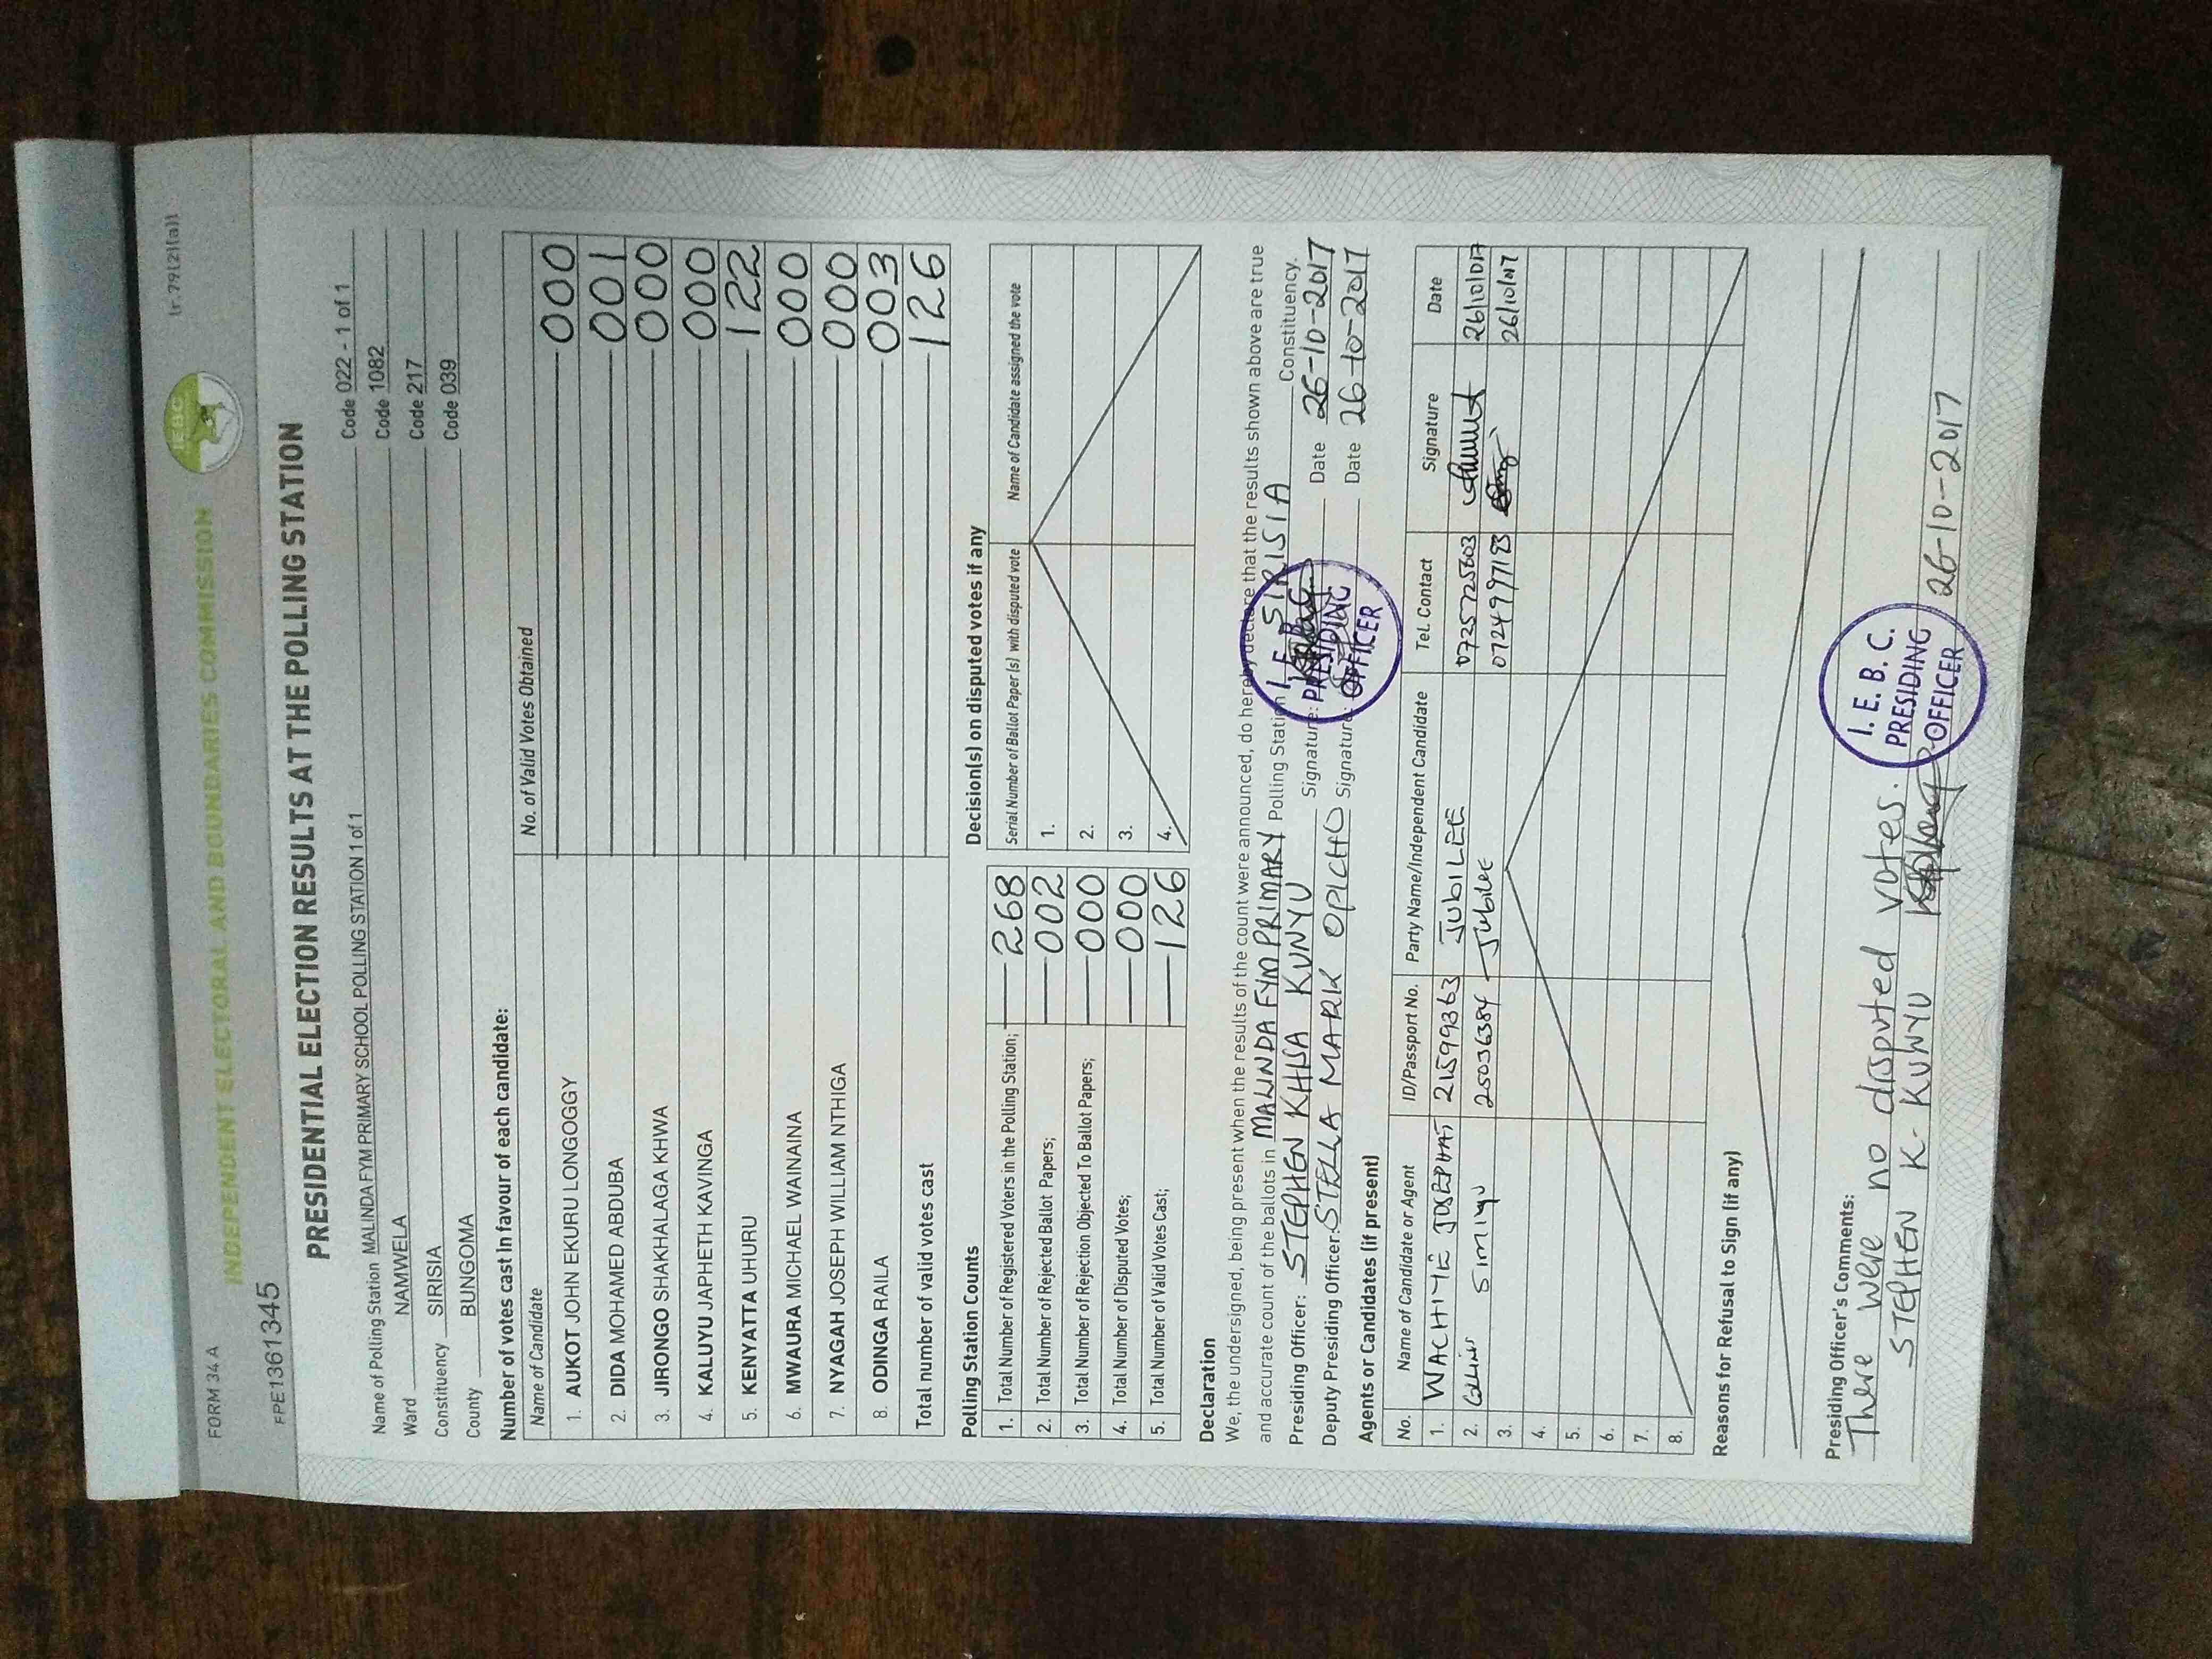 FORM 34 A
(r. 79(2)(a))
INDEPENDENT ELECTORAL AND BOUNDARIES COMMISSION
IEBC
FPE1361345
PRESIDENTIAL ELECTION RESULTS AT THE POLLING STATION
Name of Polling Station MALINDA FYM PRIMARY SCHOOL POLLING STATION 1 of 1 Code 022 - 1 of 1
Ward NAMWELA Code 1082
Constituency SIRISIA Code 217
County BUNGOMA Code 039
Number of votes cast in favour of each candidate:
Name of Candidate No. of Valid Votes Obtained
1. AUKOT JOHN EKURU LONGOGGY 000
2. DIDA MOHAMED ABDUBA 001
3. JIRONGO SHAKHALAGA KHWA 000
4. KALUYU JAPHETH KAVINGA 000
5. KENYATTA UHURU 122
6. MWAURA MICHAEL WAINAINA 000
7. NYAGAH JOSEPH WILLIAM NTHIGA 000
8. ODINGA RAILA 003
Total number of valid votes cast 126
Polling Station Counts
1. Total Number of Registered Voters in the Polling Station; 268
2. Total Number of Rejected Ballot Papers; 002
3. Total Number of Rejection Objected To Ballot Papers; 000
4. Total Number of Disputed Votes; 000
5. Total Number of Valid Votes Cast; 126
Decision(s) on disputed votes if any
Serial Number of Ballot Paper (s) with disputed vote Name of Candidate assigned the vote
1.
2.
3.
4.
Declaration
We, the undersigned, being present when the results of the count were announced, do hereby declare that the results shown above are true
and accurate count of the ballots in MALINDA FYM PRIMARY Polling Station SIRISIA Constituency.
Presiding Officer: STEPHEN KHISA KUNYU Signature: Date 26-10-2017
Deputy Presiding Officer: STELLA MARK OPICHO Signature: Date 26-10-2017
I. E. B. C.
PRESIDING
OFFICER
Agents or Candidates (if present)
No. Name of Candidate or Agent ID/Passport No. Party Name/Independent Candidate Tel. Contact Signature Date
1. WACHIYE JOSEPHAT 21599363 JUBILEE 0725725603 26/10/017
2. Collins Simiyu 25036384 Jubilee 0724997193 26/10/017
3.
4.
5.
6.
7.
8.
Reasons for Refusal to Sign (if any)
Presiding Officer's Comments:
There were no disputed votes.
STEPHEN K. KUNYU 26-10-2017
I. E. B. C.
PRESIDING
OFFICER